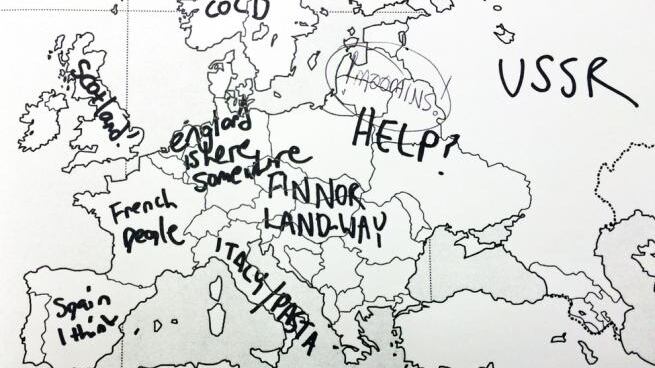 COLD
USSR
Scotland?
England
is here
somewhere
HELP?
FINNOR
LAND-WAY
French
people
ITALY/PASTA
Spain
I think